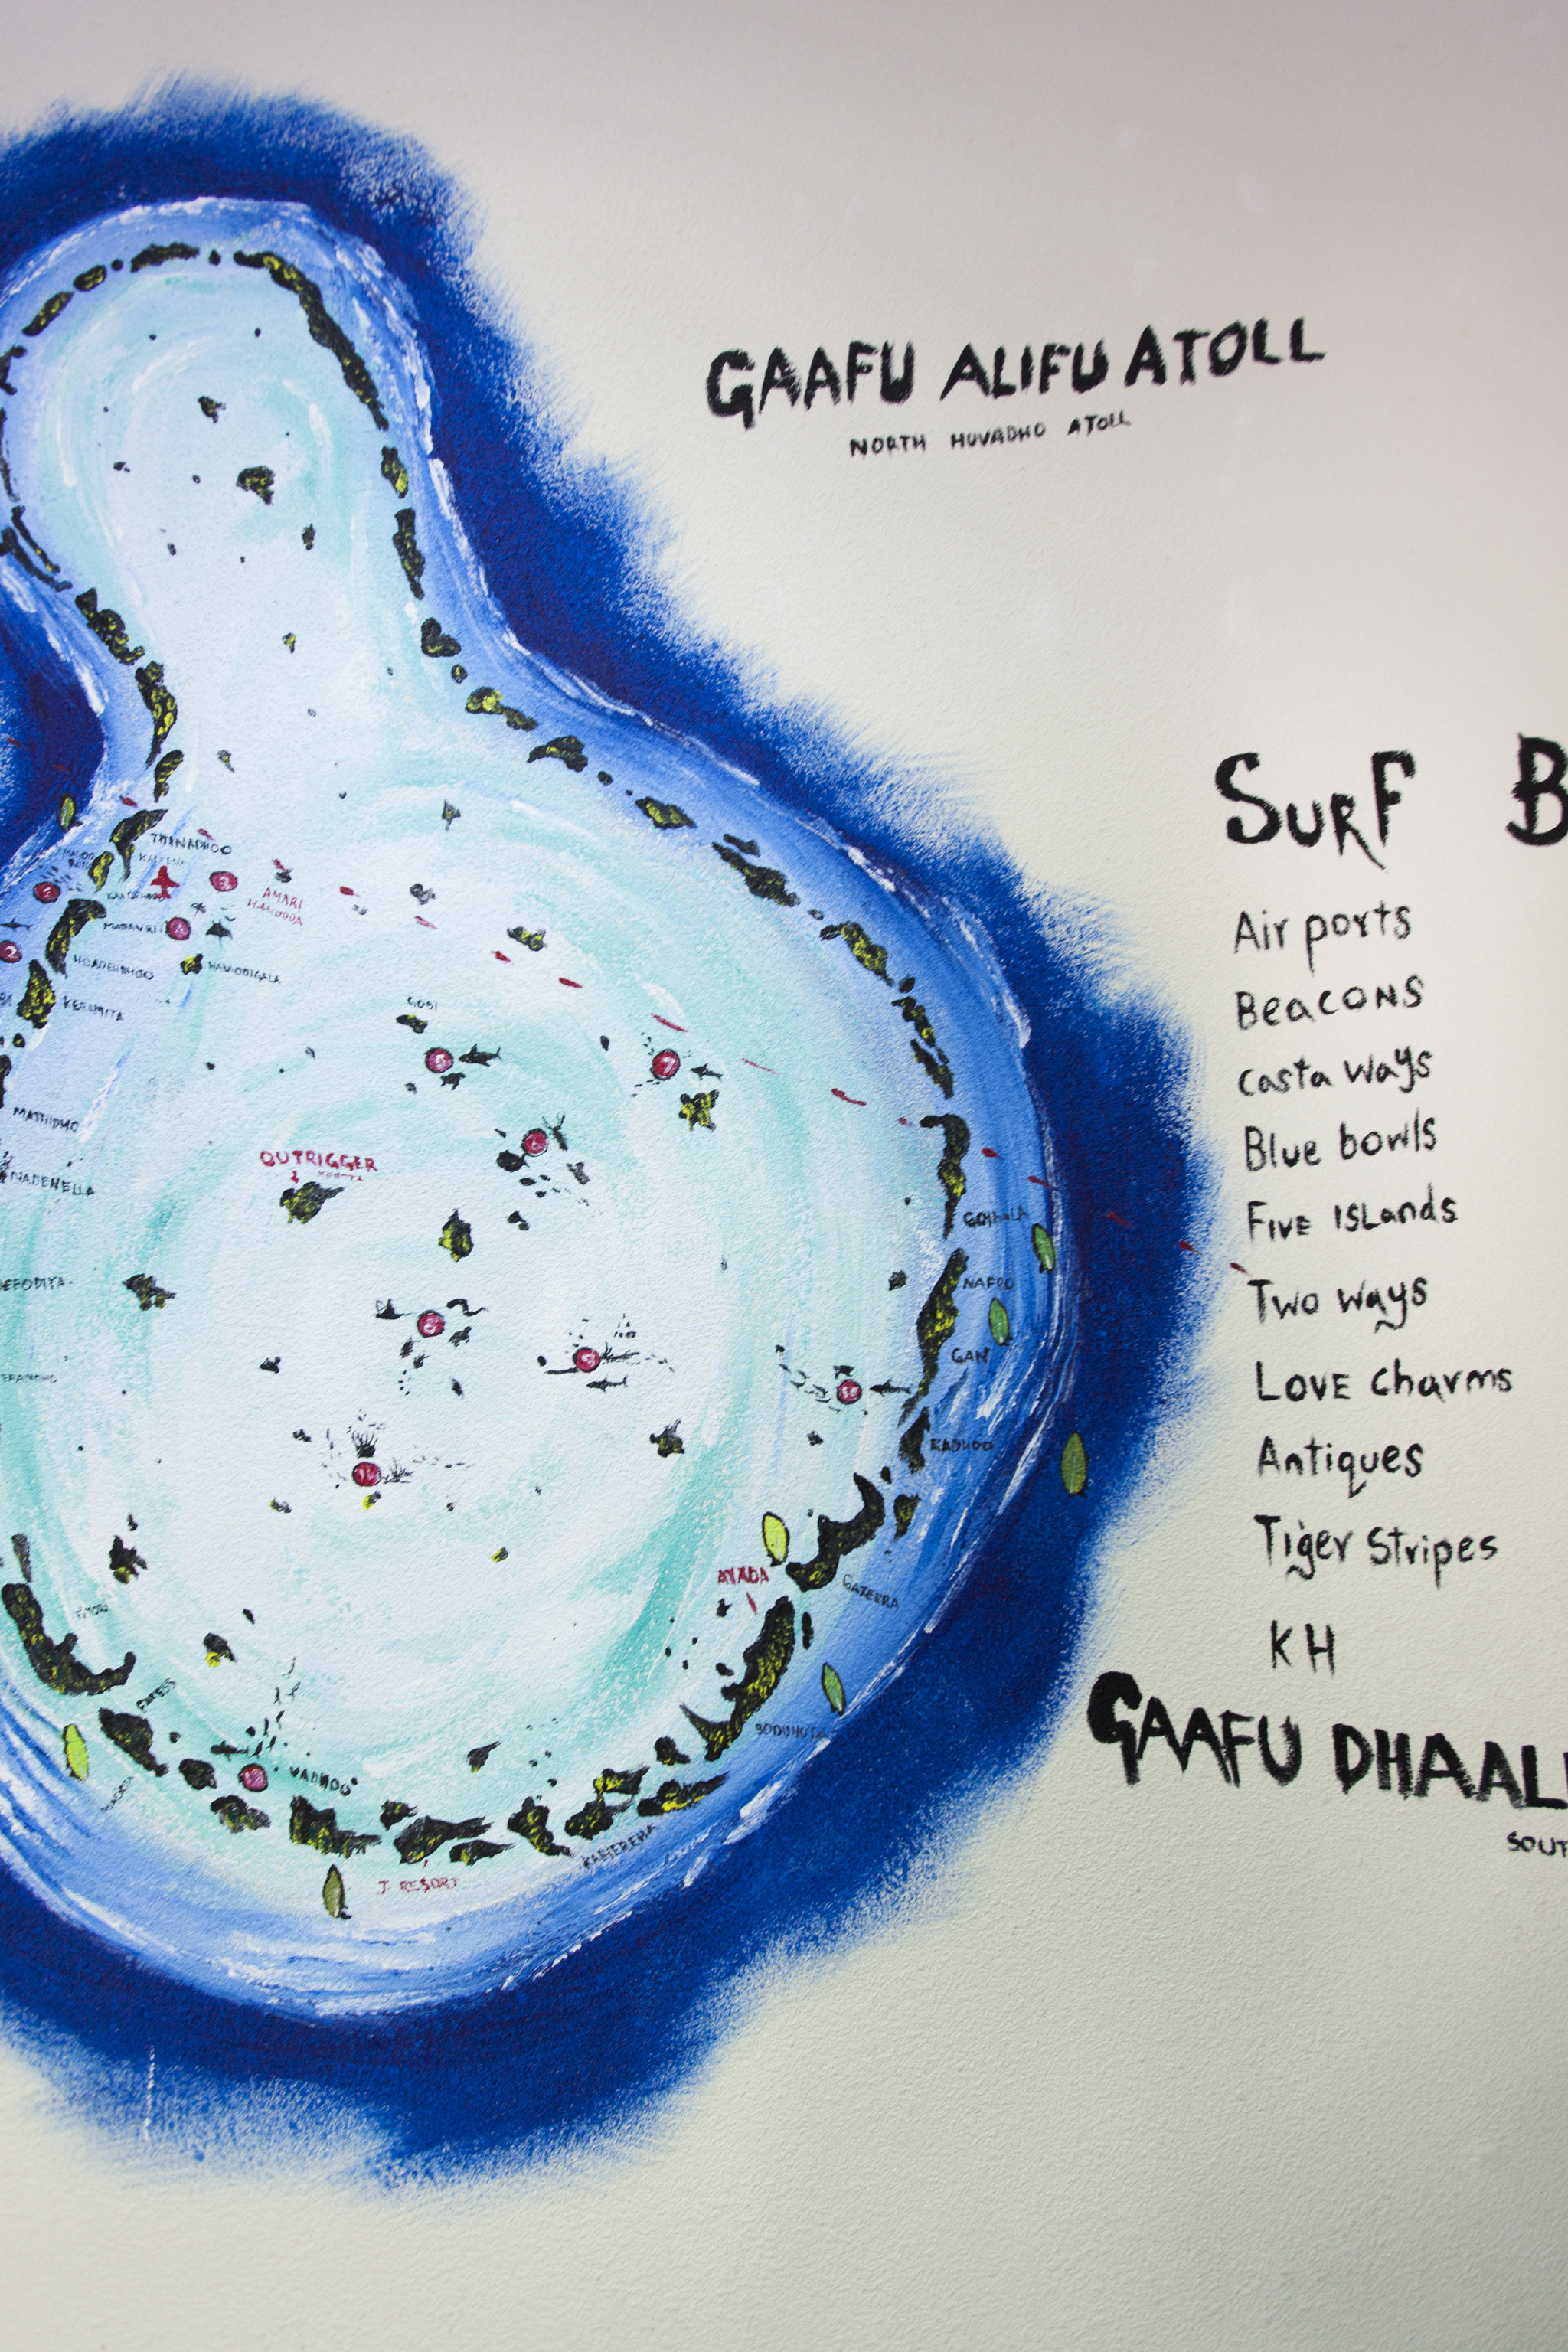 GAAFU ALIFU ATOLL
NORTH HUVADHO ATOLL
SURF B
Air ports
BEACONS
casta ways
Blue bowls
FIVE ISLands
Two ways
LOVE charms
Antiques
Tiger Stripes
KH
GAAFU DHAAL
SOUT
THINADHOO
AMARI
HAVODDA
HOADEDHDHOO
HAVODIGALA
KERAMITA
GOSI
MATHIDHO
OUTRIGGER
NADENELLA
NAFRO
GAN
KADHOO
AYADA
GAZEERA
VADHOO
J. RESORT